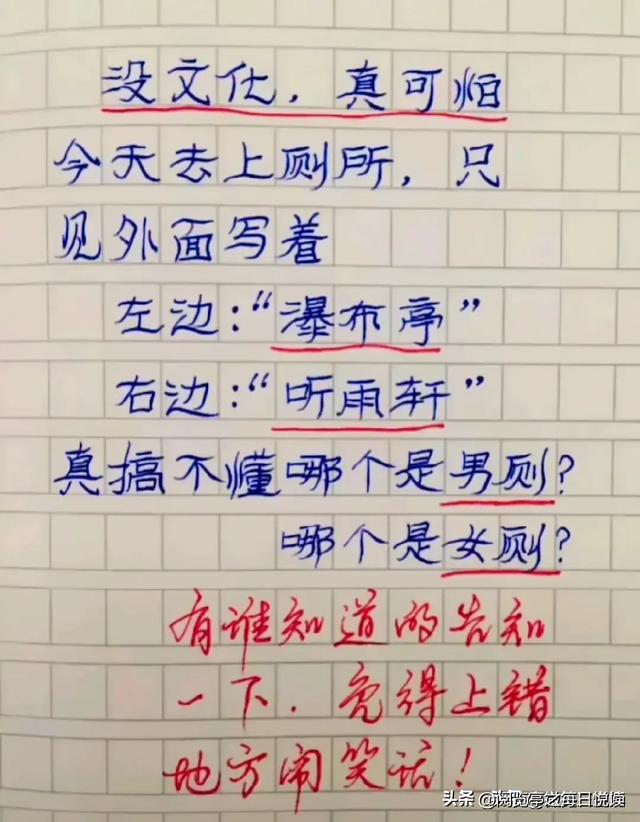 没文化，真可怕
今天去上厕所，只
见外面写着
左边：“瀑布亭”
右边：“听雨轩”
真搞不懂哪个是男厕？
哪个是女厕？
有谁知道的告知
一下．免得上错
地方闹笑话！
头条 @